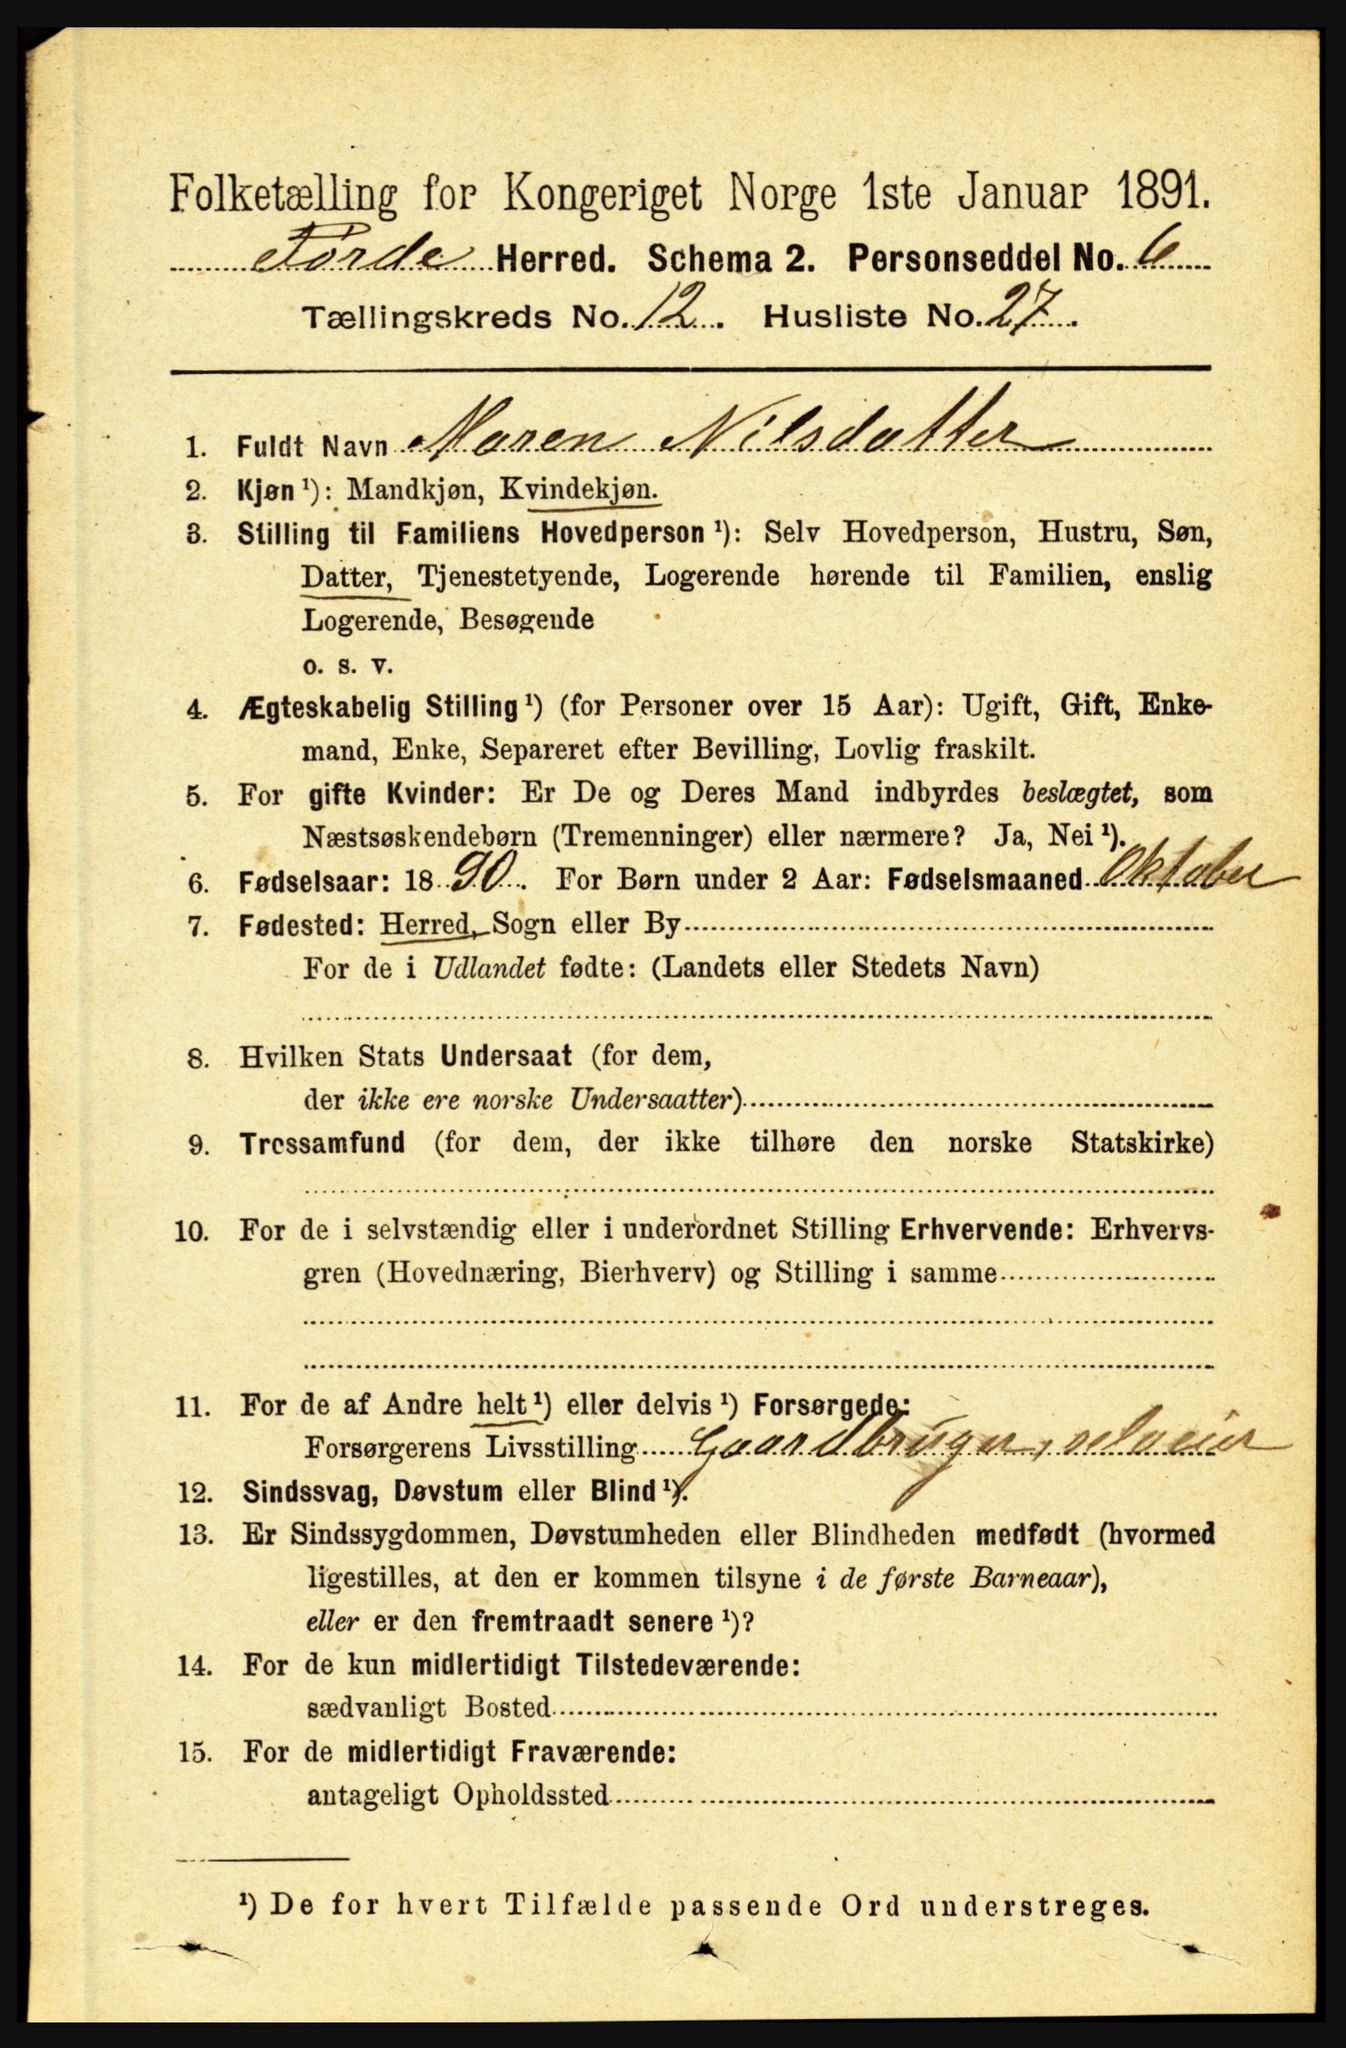 Folketælling for Kongeriget Norge 1ste Januar 1891.
Førde Herred. Schema 2. Personseddel No. 6
Tællingskreds No. 12. Husliste No. 27.
1. Fuldt Navn Maren Nilsdatter
2. Kjøn ¹): Mandkjøn, Kvindekjøn.
3. Stilling til Familiens Hovedperson ¹): Selv Hovedperson, Hustru, Søn,
Datter, Tjenestetyende, Logerende hørende til Familien, enslig
Logerende, Besøgende
o. s. v.
4. Ægteskabelig Stilling ¹) (for Personer over 15 Aar): Ugift, Gift, Enke-
mand, Enke, Separeret efter Bevilling, Lovlig fraskilt.
5. For gifte Kvinder: Er De og Deres Mand indbyrdes beslægtet, som
Næstsøskendebørn (Tremenninger) eller nærmere? Ja, Nei ¹).
6. Fødselsaar: 1890. For Børn under 2 Aar: Fødselsmaaned Oktober
7. Fødested: Herred, Sogn eller By
For de i Udlandet fødte: (Landets eller Stedets Navn)
8. Hvilken Stats Undersaat (for dem,
der ikke ere norske Undersaatter)
9. Trossamfund (for dem, der ikke tilhøre den norske Statskirke)
10. For de i selvstændig eller i underordnet Stilling Erhvervende: Erhvervs-
gren (Hovednæring, Bierhverv) og Stilling i samme
11. For de af Andre helt ¹) eller delvis ¹) Forsørgede:
Forsørgerens Livsstilling Gaardbruger, selveier
12. Sindssvag, Døvstum eller Blind ¹).
13. Er Sindssygdommen, Døvstumheden eller Blindheden medfødt (hvormed
ligestilles, at den er kommen tilsyne i de første Barneaar),
eller er den fremtraadt senere ¹)?
14. For de kun midlertidigt Tilstedeværende:
sædvanligt Bosted
15. For de midlertidigt Fraværende:
antageligt Opholdssted
¹) De for hvert Tilfælde passende Ord understreges.